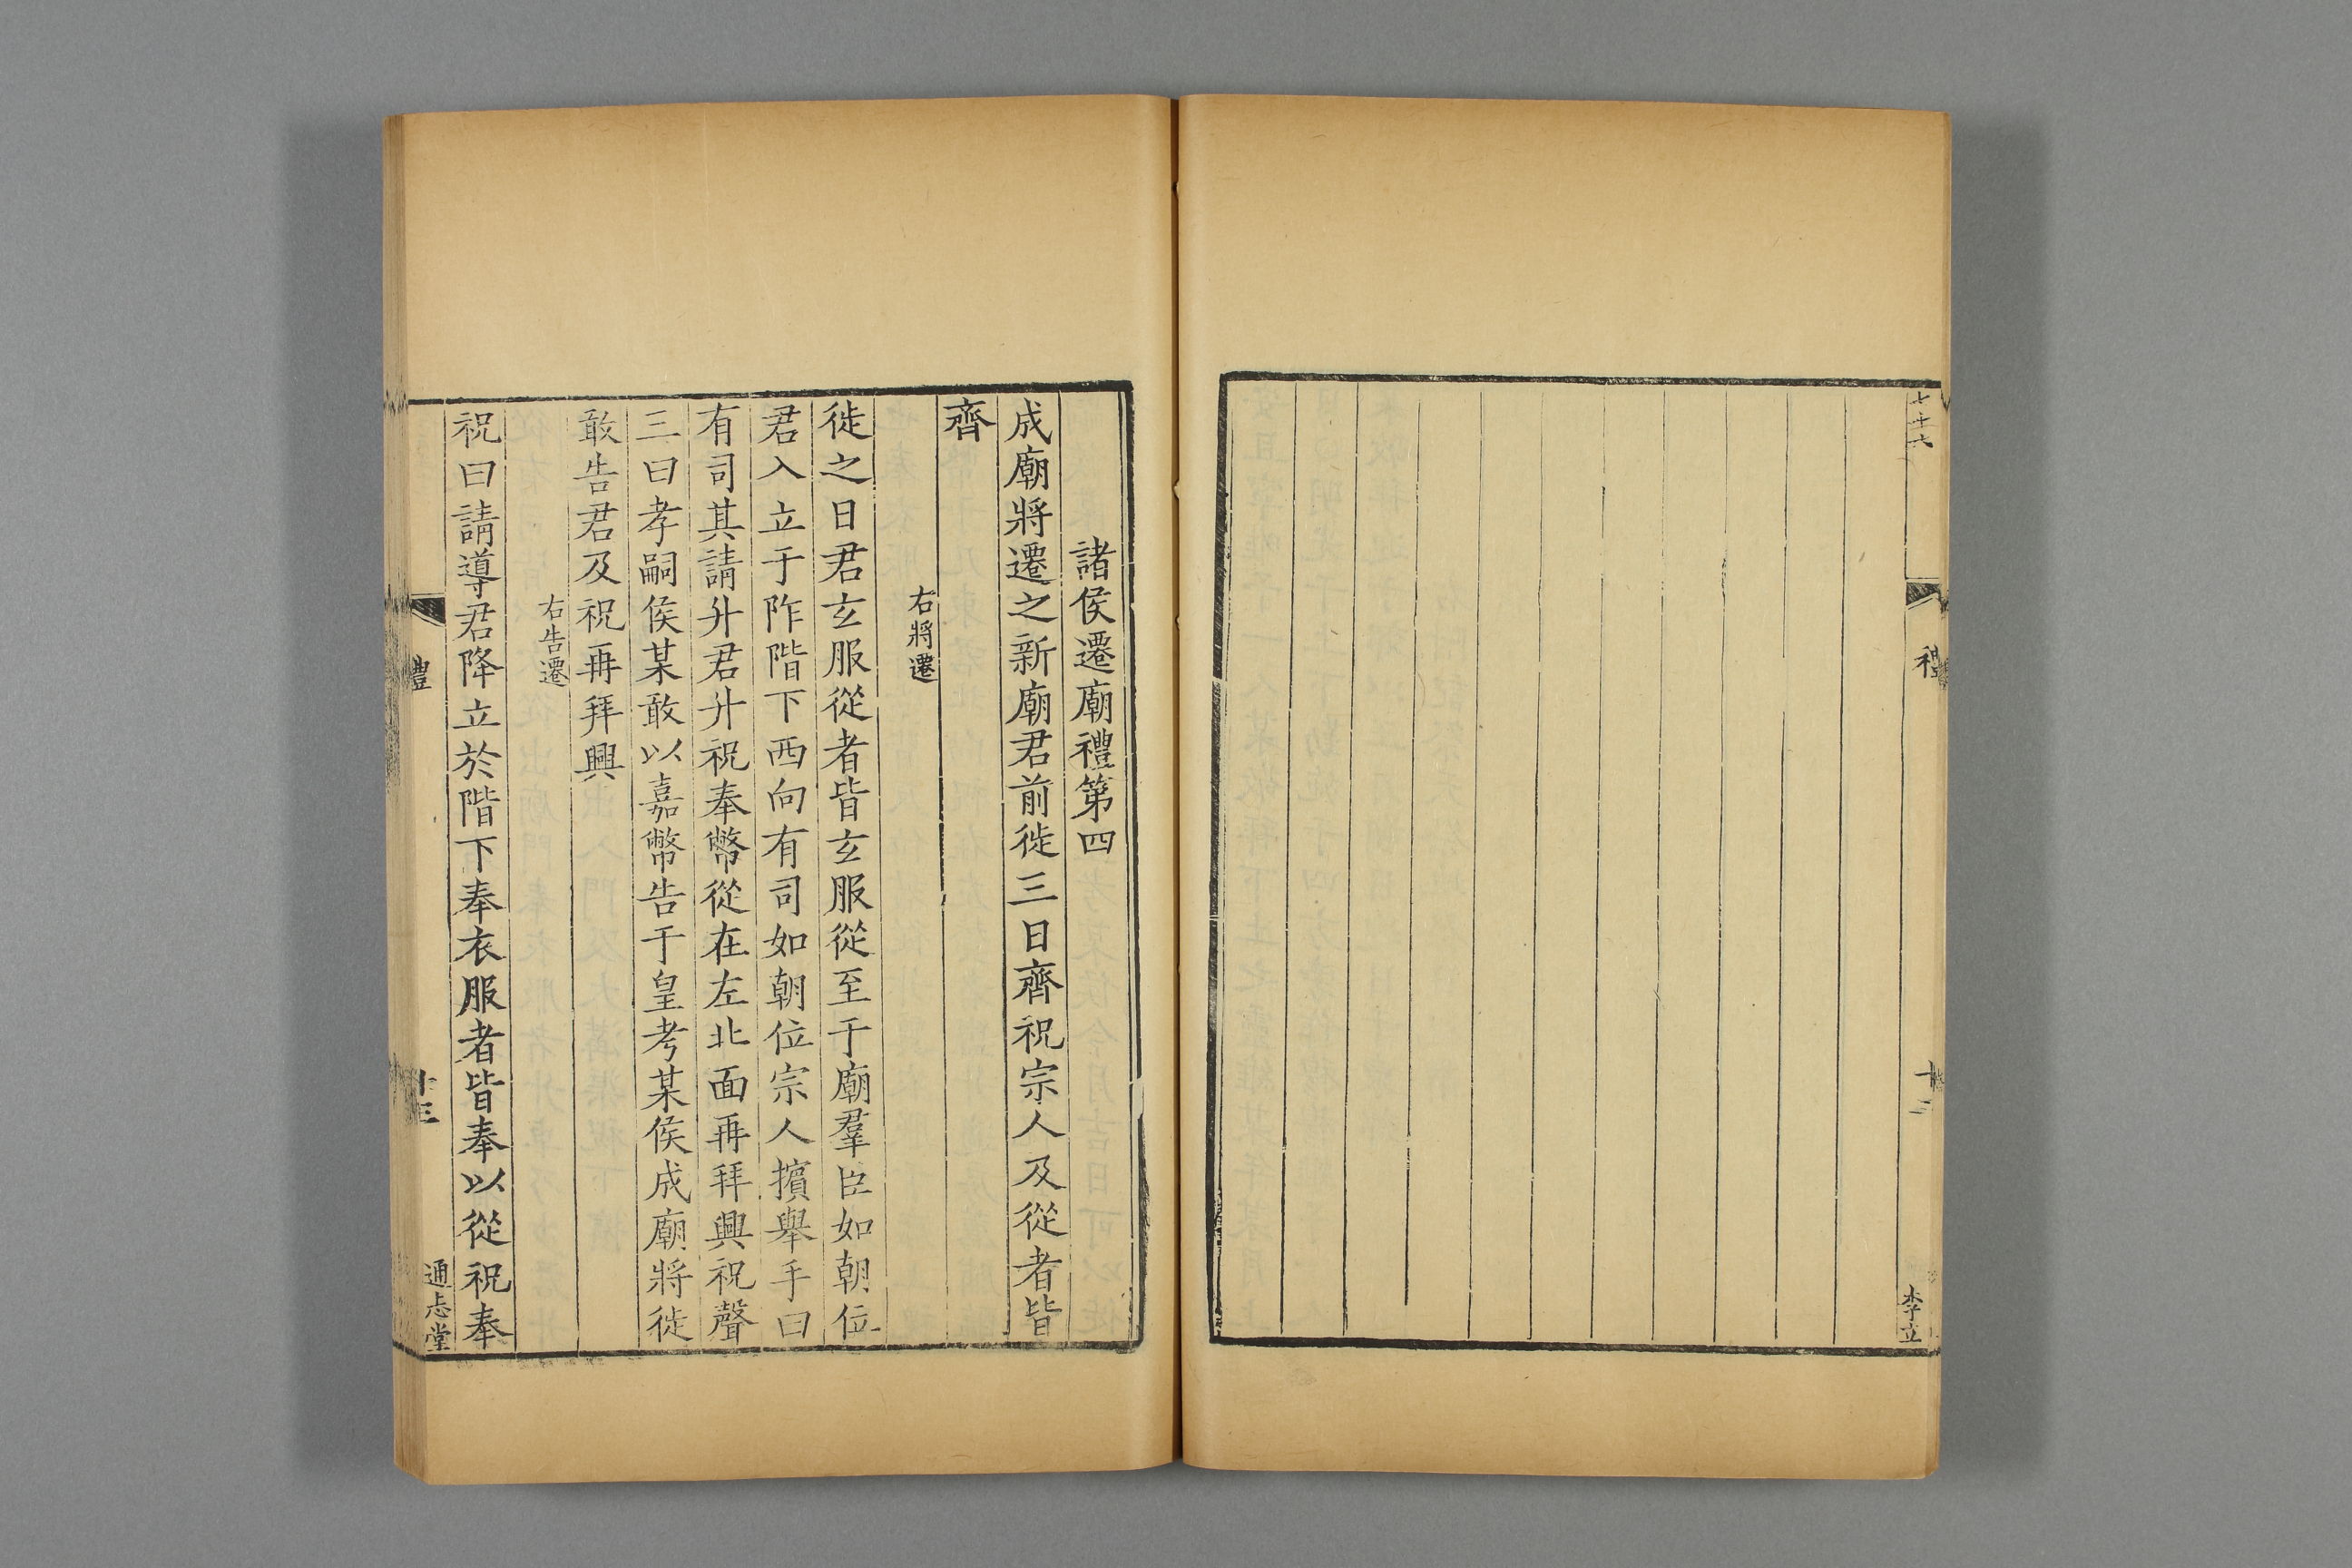 七十六
禮
十二
李立
諸侯遷廟禮第四
成廟將遷之新廟君前徙三日齊祝宗人及從者皆
齊
右將遷
徙之日君玄服從者皆玄服從至于廟羣臣如朝位
君入立于阼階下西向有司如朝位宗人擯舉手曰
有司其請升君升祝奉幣從在左北面再拜興祝聲
三曰孝嗣侯某敢以嘉幣告于皇考某侯成廟將徙
敢告君及祝再拜興
右告遷
祝曰請導君降立於階下奉衣服者皆奉以從祝奉
禮
十三
通志堂